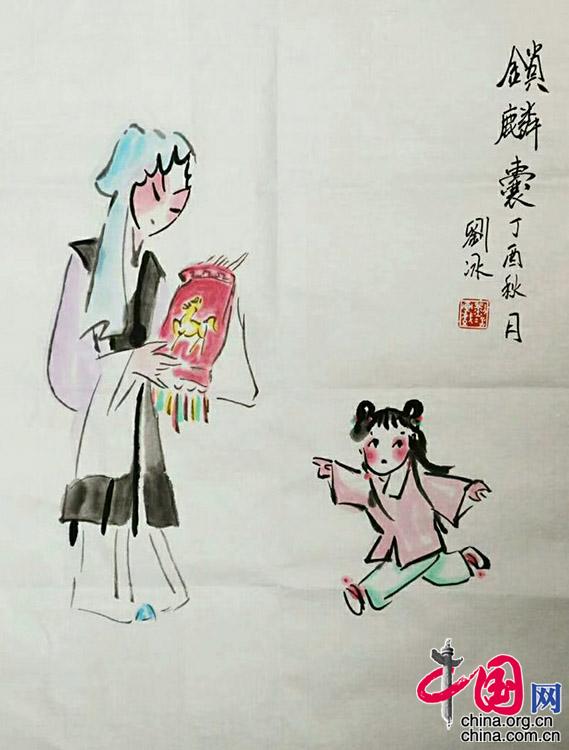 鎖麟囊
丁酉秋月
劉冰
中国网
china.org.cn
china.com.cn